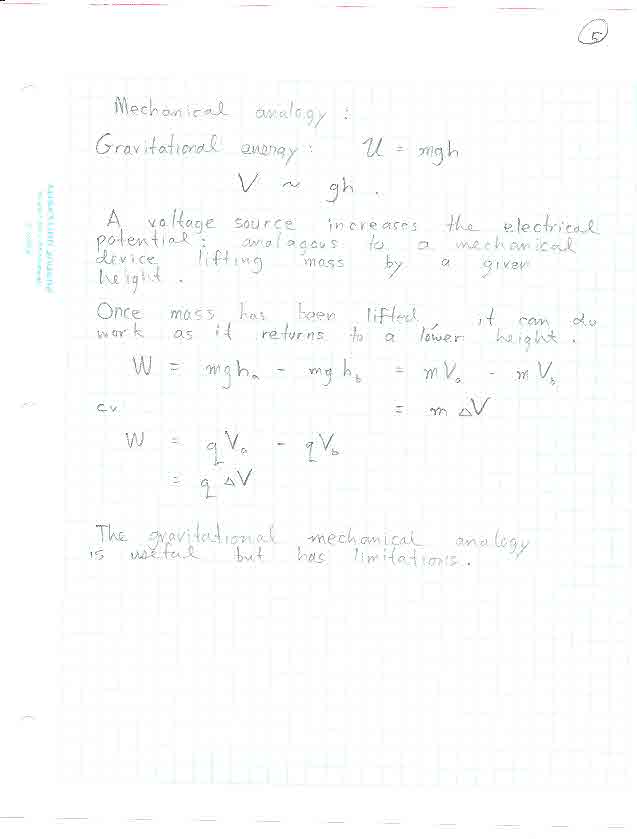 5
Mechanical analogy :
Gravitational energy : U = mgh
V ~ gh .
A voltage source increases the electrical
potential : analagous to a mechanical
device lifting mass by a given
height .
Once mass has been lifted , it can do
work as it returns to a lower height .
W = mgh_a - mgh_b = mV_a - mV_b
= m ΔV
c.v.
W = qV_a - qV_b
= q ΔV
The gravitational mechanical analogy
is useful but has limitations .